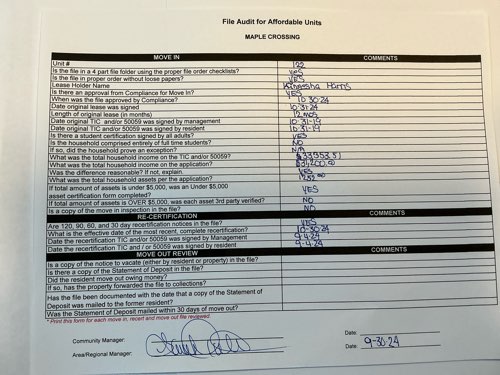 File Audit for Affordable Units
MAPLE CROSSING
MOVE IN COMMENTS
Unit # 122
Is the file in a 4 part file folder using the proper file order checklists? yes
Is the file in proper order without loose papers? YES
Lease Holder Name Harris
Is there an approval from Compliance for Move In? YES
When was the file approved by Compliance? 10 30 24
Date original lease was signed 10-31-24
Length of original lease (in months) 12 mos
Date original TIC and/or 50059 was signed by management 10-31-19
Date original TIC and/or 50059 was signed by resident 10-31-19
Is there a student certification signed by all adults? YES
Is the household comprised entirely of full time students? NO
If so, did the household prove an exception? N/A
What was the total household income on the TIC and/or 50059?
What was the total household income on the application?
Was the difference reasonable? If not, explain. YES
What was the total household assets per the application?
If total amount of assets is under $5,000, was an Under $5,000
asset certification form completed? YES
If total amount of assets is OVER $5,000, was each asset 3rd party verified? NO
Is a copy of the move in inspection in the file? NO
RE-CERTIFICATION COMMENTS
Are 120, 90, 60, and 30 day recertification notices in the file? YES
What is the effective date of the most recent, complete recertification? 10-30-24
Date the recertification TIC and/or 50059 was signed by Management 9-4-24
Date the recertification TIC and / or 50059 was signed by resident 9-4-24
MOVE OUT REVIEW COMMENTS
Is a copy of the notice to vacate (either by resident or property) in the file?
Is there a copy of the Statement of Deposit in the file?
Did the resident move out owing money?
If so, has the property forwarded the file to collections?
Has the file been documented with the date that a copy of the Statement of
Deposit was mailed to the former resident?
Was the Statement of Deposit mailed within 30 days of move out?
* Print this form for each move in, recert and move out file reviewed
Community Manager: Date:
Area/Regional Manager: Date: 9-30-24